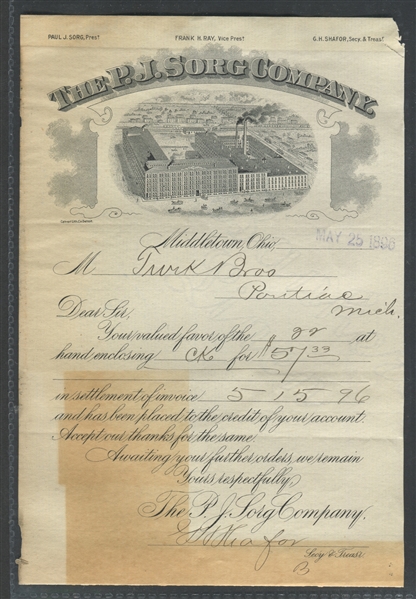 PAUL J. SORG, Prest FRANK H. RAY, Vice Prest G. H. SHAFOR, Secy. & Treast
THE P.J. SORG COMPANY.
Middletown, Ohio, MAY 25 1896
M Turk Bros
Pontiac
Mich.
Dear Sir,
Your valued favor of the 22 at
hand enclosing CK for $57 33
in settlement of invoice 5 15 96
and has been placed to the credit of your account.
Accept our thanks for the same.
Awaiting your further orders, we remain
Yours respectfully,
The P. J. Sorg Company.
G H Shafor
Secy & Treast